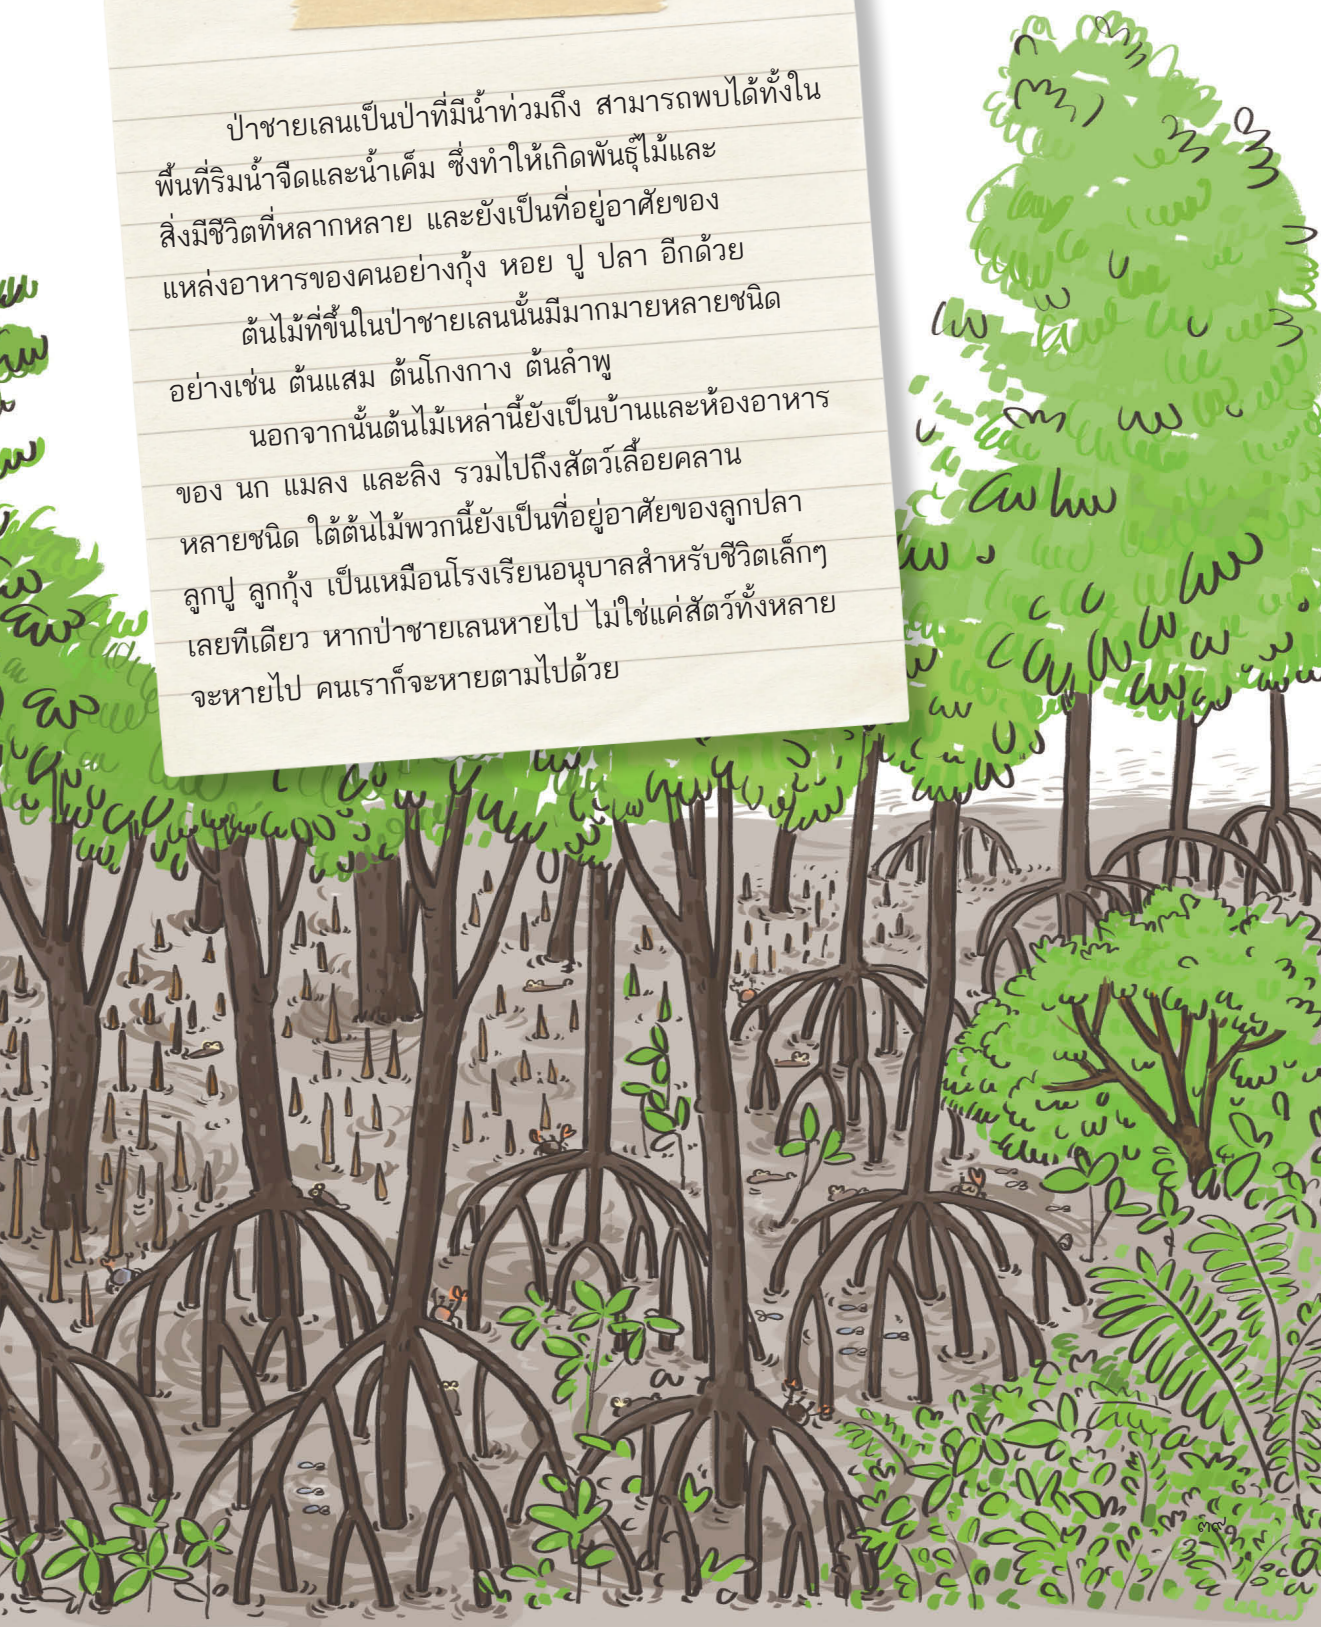 ป่าชายเลนเป็นป่าที่มีน้ำท่วมถึง สามารถพบได้ทั้งใน
พื้นที่ริมน้ำจืดและน้ำเค็ม ซึ่งทำให้เกิดพันธุ์ไม้และ
สิ่งมีชีวิตที่หลากหลาย และยังเป็นที่อยู่อาศัยของ
แหล่งอาหารของคนอย่างกุ้ง หอย ปู ปลา อีกด้วย
ต้นไม้ที่ขึ้นในป่าชายเลนนั้นมีมากมายหลายชนิด
อย่างเช่น ต้นแสม ต้นโกงกาง ต้นลำพู
นอกจากนั้นต้นไม้เหล่านี้ยังเป็นบ้านและห้องอาหาร
ของ นก แมลง และลิง รวมไปถึงสัตว์เลื้อยคลาน
หลายชนิด ใต้ต้นไม้พวกนี้ยังเป็นที่อยู่อาศัยของลูกปลา
ลูกปู ลูกกุ้ง เป็นเหมือนโรงเรียนอนุบาลสำหรับชีวิตเล็กๆ
เลยทีเดียว หากป่าชายเลนหายไป ไม่ใช่แค่สัตว์ทั้งหลาย
จะหายไป คนเราก็จะหายตามไปด้วย
๓๙